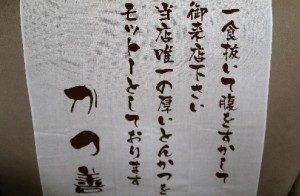 一食抜いて腹をすかして
御来店下さい
当店唯一の厚いとんかつを
モットーとしております
かつ善